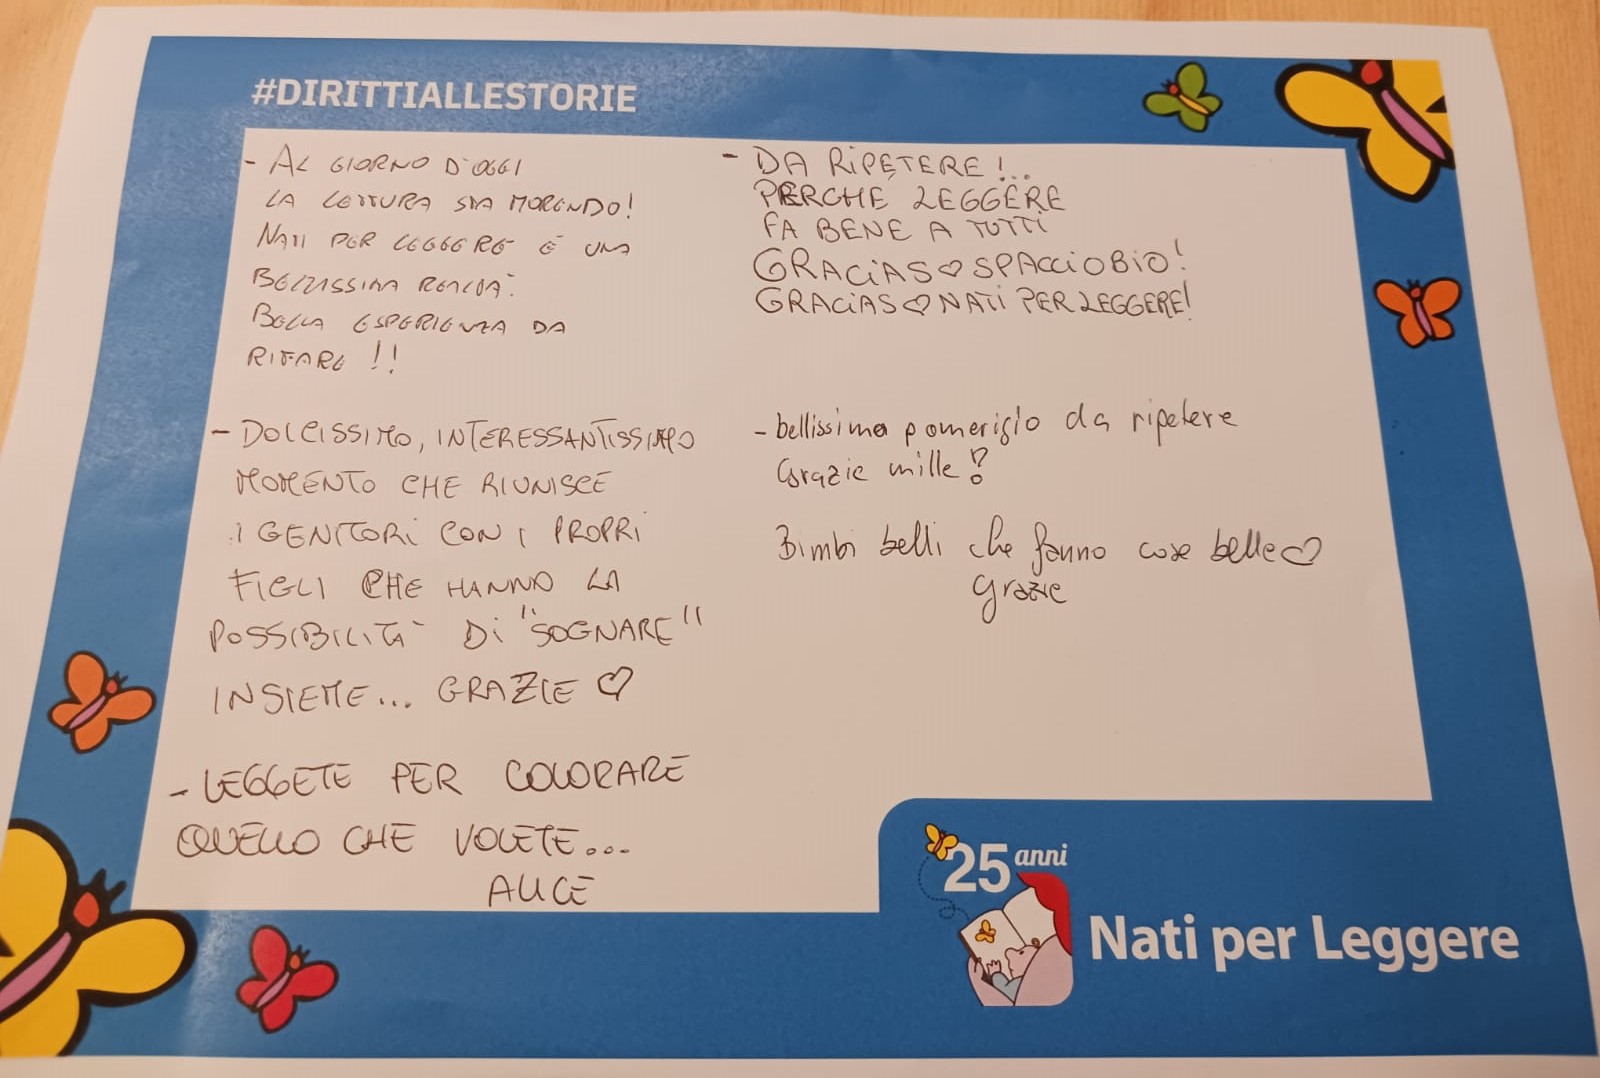 #DIRITTIALLESTORIE
- AL GIORNO D'OGGI
LA LETTURA STA MORENDO!
NATI PER LEGGERE È UNA
BELLISSIMA REALTÀ.
BELLA ESPERIENZA DA
RIFARE!!
- DOLCISSIMO, INTERESSANTISSIMO
MOMENTO CHE RIUNISCE
I GENITORI CON I PROPRI
FIGLI CHE HANNO LA
POSSIBILITÀ DI "SOGNARE"
INSIEME... GRAZIE ♡
- LEGGETE PER COLORARE
QUELLO CHE VOLETE...
ALICE
- DA RIPETERE!..
PERCHÉ LEGGERE
FA BENE A TUTTI
GRACIAS ♡ SPACCIOBIO!
GRACIAS ♡ NATI PER LEGGERE!
- bellissimo pomerigio da ripetere
Grazie mille!
Bimbi belli che fanno cose belle ♡
grazie
25 anni
Nati per Leggere